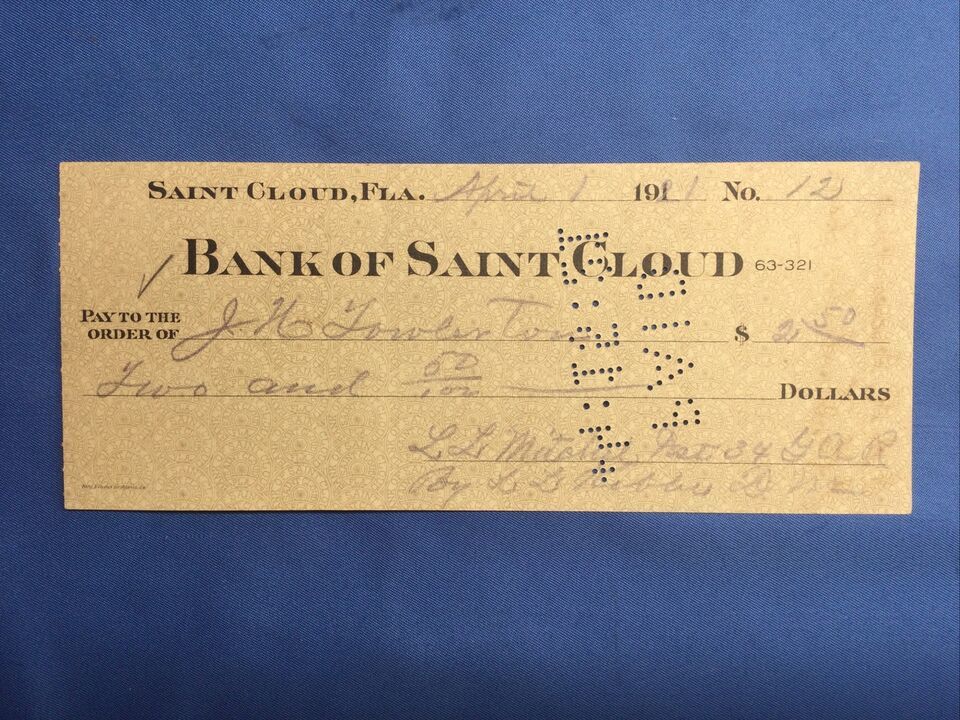 SAINT CLOUD, FLA. April 1 1921 No. 12
BANK OF SAINT CLOUD 63-321
PAY TO THE ORDER OF J. W. Fowler Tom $ 2 50
Two and 50/100 DOLLARS
L. L. Mitchel Post 34 G A R
By L. L.